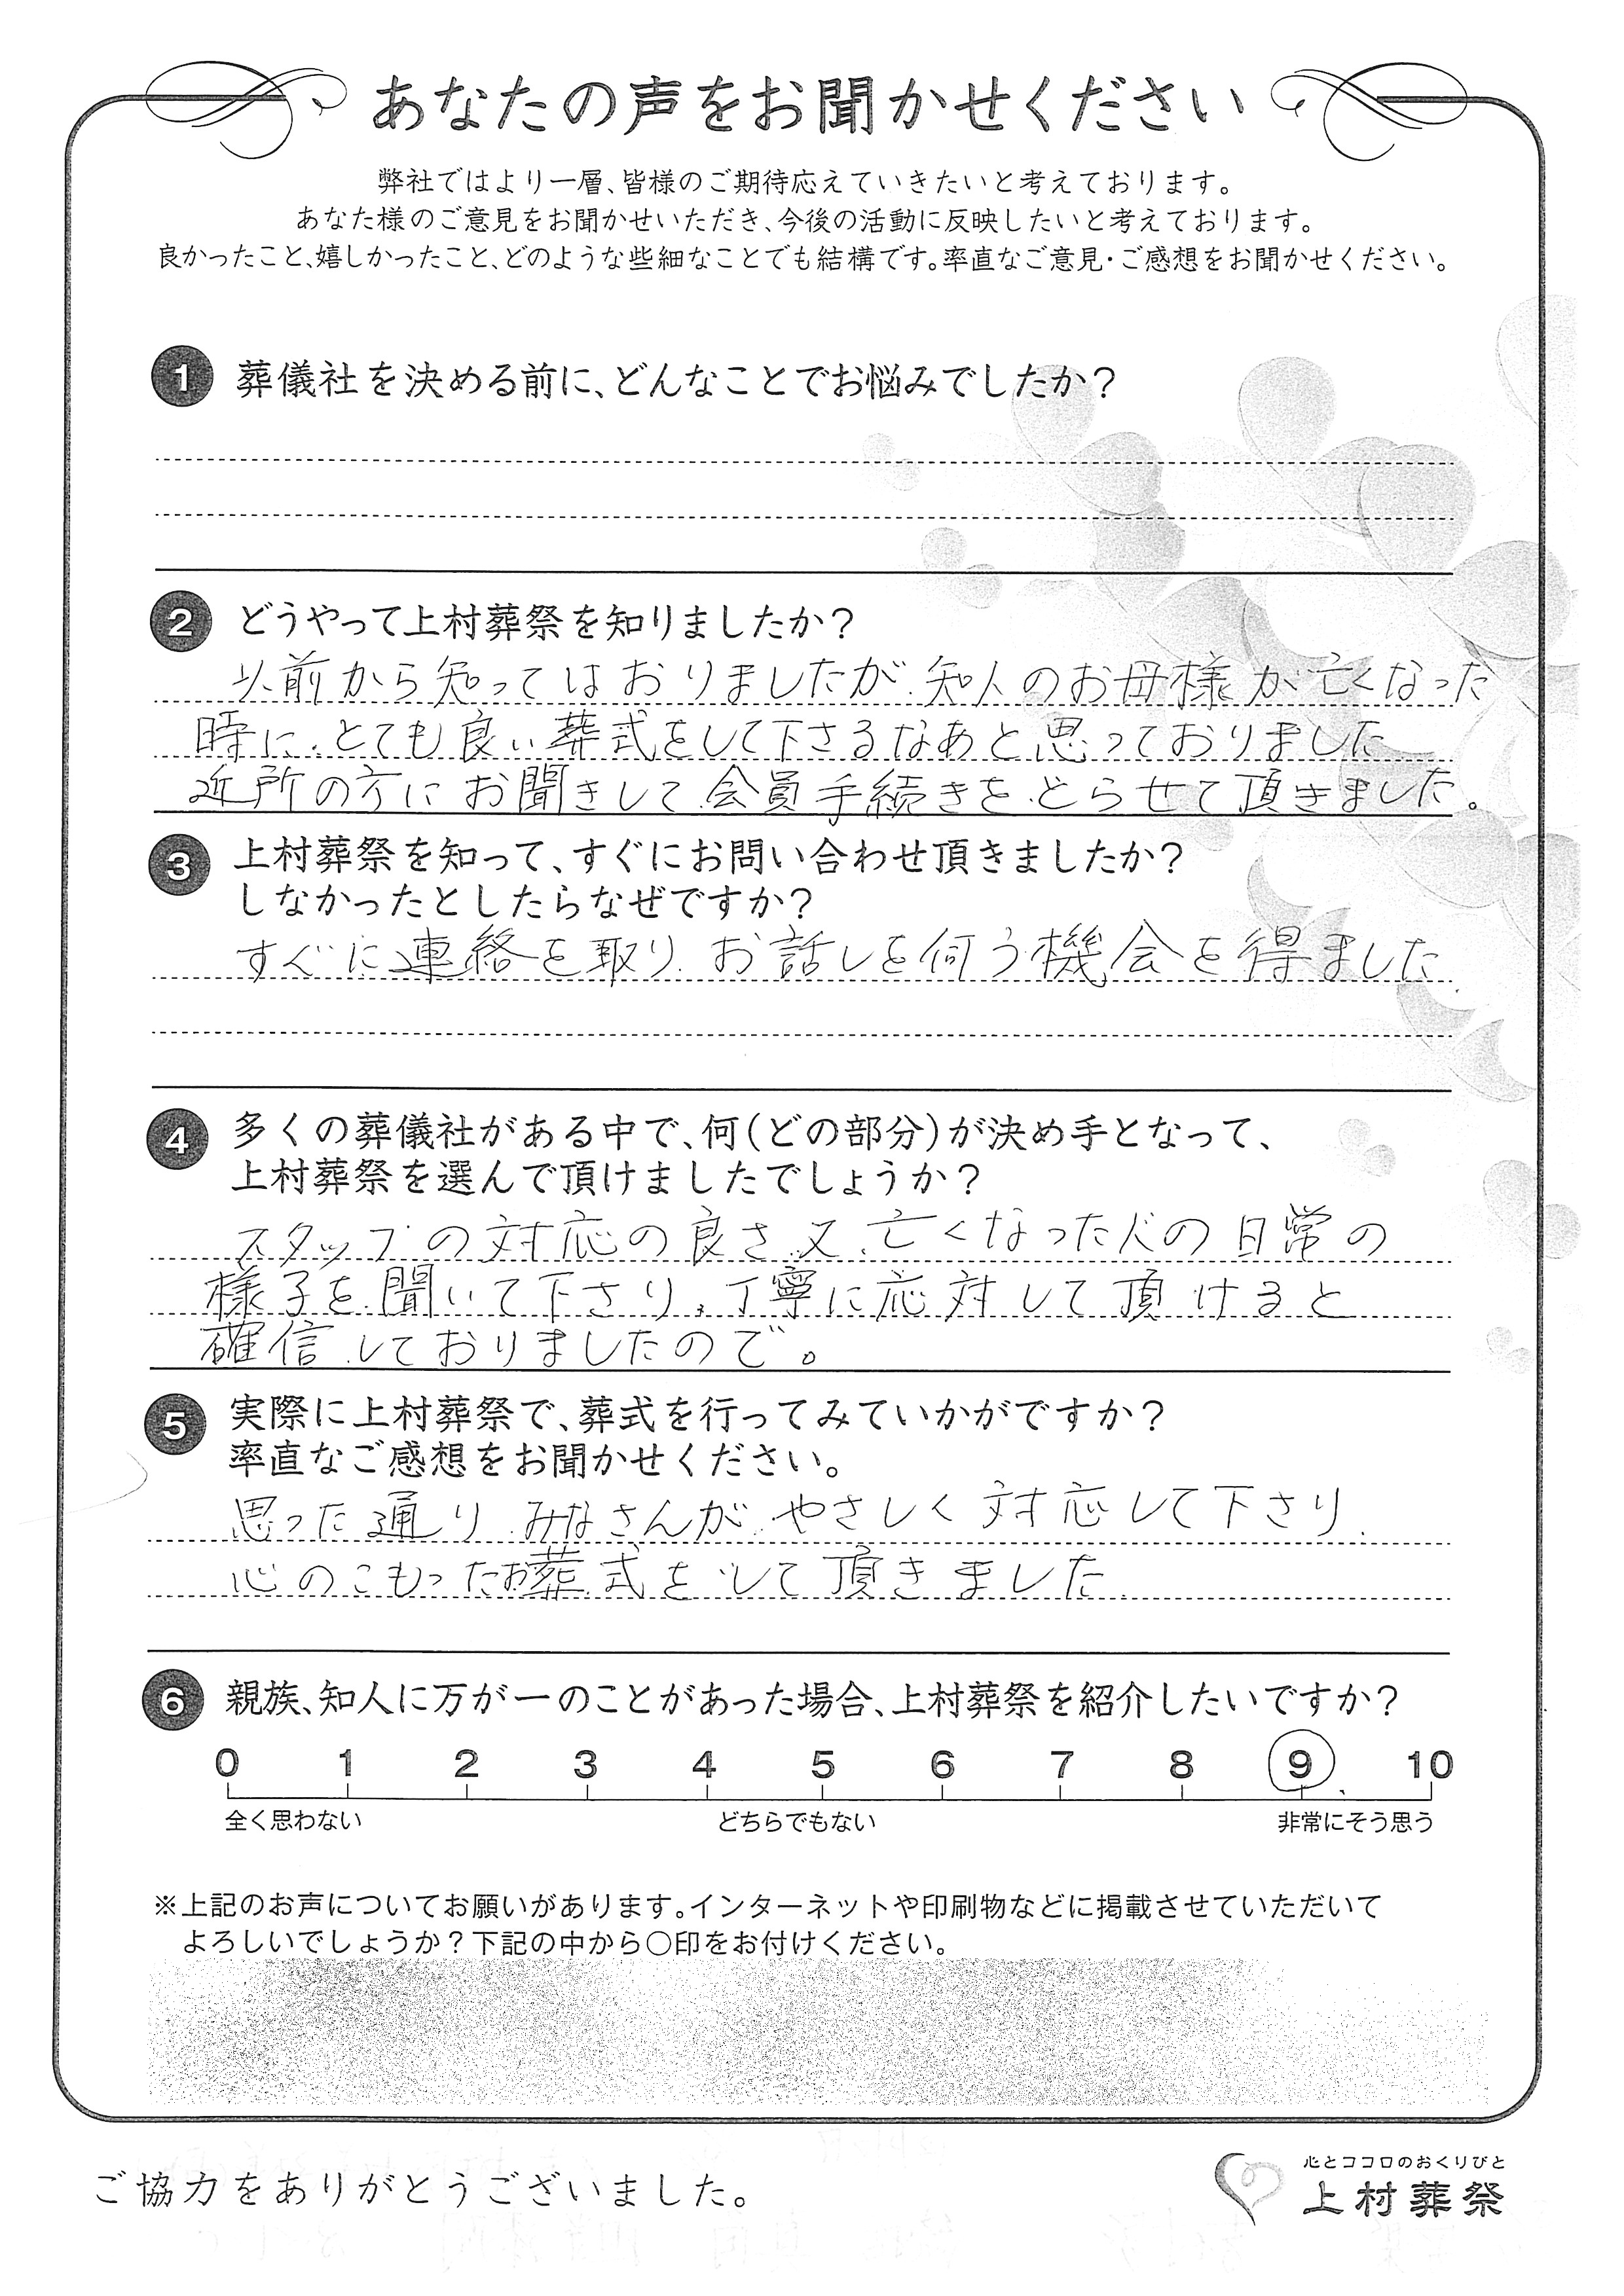 あなたの声をお聞かせください
弊社ではより一層、皆様のご期待応えていきたいと考えております。
あなた様のご意見をお聞かせいただき、今後の活動に反映したいと考えております。
良かったこと、嬉しかったこと、どのような些細なことでも結構です。率直なご意見・ご感想をお聞かせください。
1 葬儀社を決める前に、どんなことでお悩みでしたか？
2 どうやって上村葬祭を知りましたか？
以前から知ってはおりましたが、知人のお母様が亡くなった
時に、とても良い葬式をして下さるなあと思っておりました
近所の方にお聞きして会員手続きをとらせて頂きました。
3 上村葬祭を知って、すぐにお問い合わせ頂きましたか？
しなかったとしたらなぜですか？
すぐに連絡を取り、お話しを伺う機会を得ました
4 多くの葬儀社がある中で、何（どの部分）が決め手となって、
上村葬祭を選んで頂けましたでしょうか？
スタッフの対応の良さ、又、亡くなった人の日常の
様子を聞いて下さり、丁寧に応対して頂けると
確信しておりましたので。
5 実際に上村葬祭で、葬式を行ってみていかがですか？
率直なご感想をお聞かせください。
思った通り、みなさんが、やさしく対応して下さり、
心のこもったお葬式をして頂きました。
6 親族、知人に万が一のことがあった場合、上村葬祭を紹介したいですか？
0 1 2 3 4 5 6 7 8 9 10
全く思わない どちらでもない 非常にそう思う
※上記のお声についてお願いがあります。インターネットや印刷物などに掲載させていただいて
よろしいでしょうか？下記の中から○印をお付けください。
ご協力をありがとうございました。
心とココロのおくりびと
上村葬祭